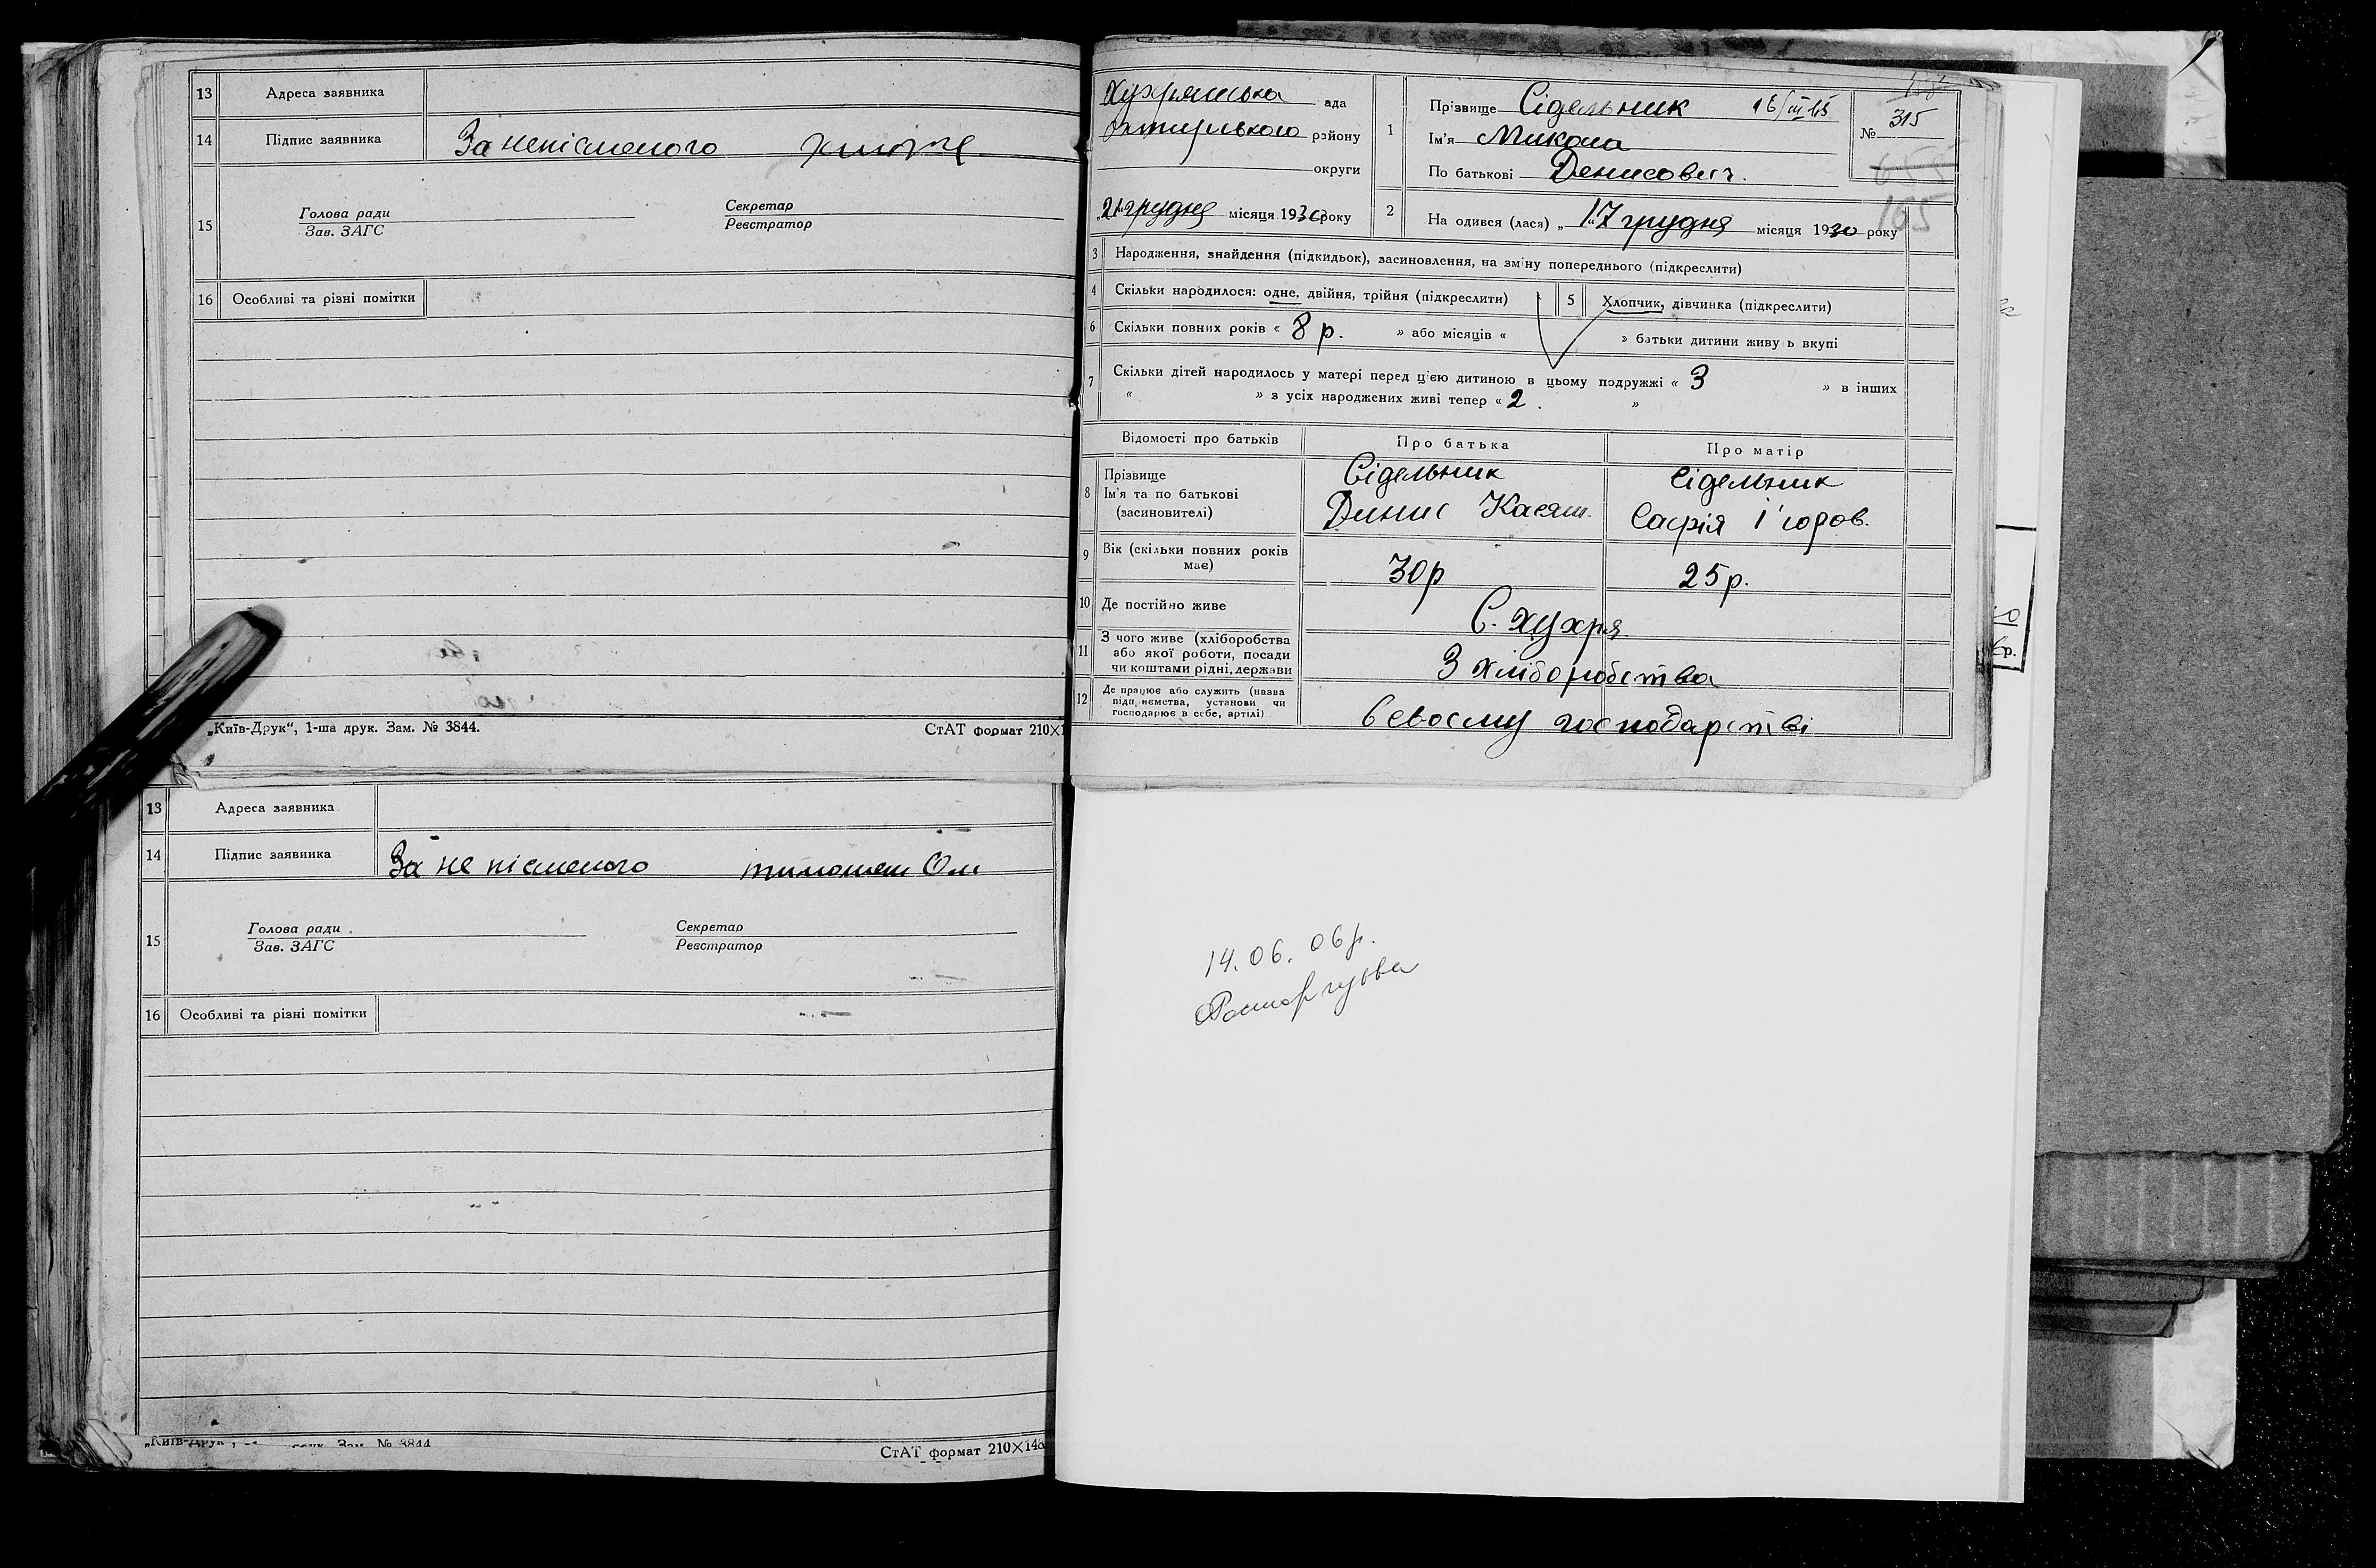 13 Адреса заявника
14 Підпис заявника За непісьменого
15 Голова ради Секретар
Зав. ЗАГС Реєстратор
16 Особливі та різні помітки
„Київ-Друк“, 1-ша друк. Зам. № 3844.
СтАТ формат 210×1
13 Адреса заявника
14 Підпис заявника За не пісьменого
15 Голова ради Секретар
Зав. ЗАГС Реєстратор
16 Особливі та різні помітки
Зам. № 3844
СтАТ формат 210×148
Хухрянська ада
Охтирського району
округи
„21“ грудня місяця 1930 року
1 Прізвище Сідельник 16/III 45
Ім'я Микола
По батькові Денисович.
№ 315
165
2 На одився (лася) „17 грудня місяця 1930 року
3 Народження, знайдення (підкидьок), засиновлення, на зміну попереднього (підкреслити)
4 Скільки народилося: одне, двійня, трійня (підкреслити)
5 Хлопчик, дівчинка (підкреслити)
6 Скільки повних років « 8 р. » або місяців « » батьки дитини живу ь вкупі
7 Скільки дітей народилось у матері перед цією дитиною в цьому подружжі « 3 » в інших
« » з усіх народжених живі тепер « 2 . »
Відомості про батьків Про батька Про матір
8 Прізвище Сідельник Сідельник
Ім'я та по батькові Динис Касян. Софія
(засиновителі)
9 Вік (скільки повних років має) 30р 25р.
10 Де постійно живе С. Хухря
11 З чого живе (хліборобства або якої роботи, посади чи коштами рідні, держави З хліборобства
12 Де працює або служить (назва підп, иємства, установи чи господарює в себе, артілі) В своєму господарстві
14.06.06р.